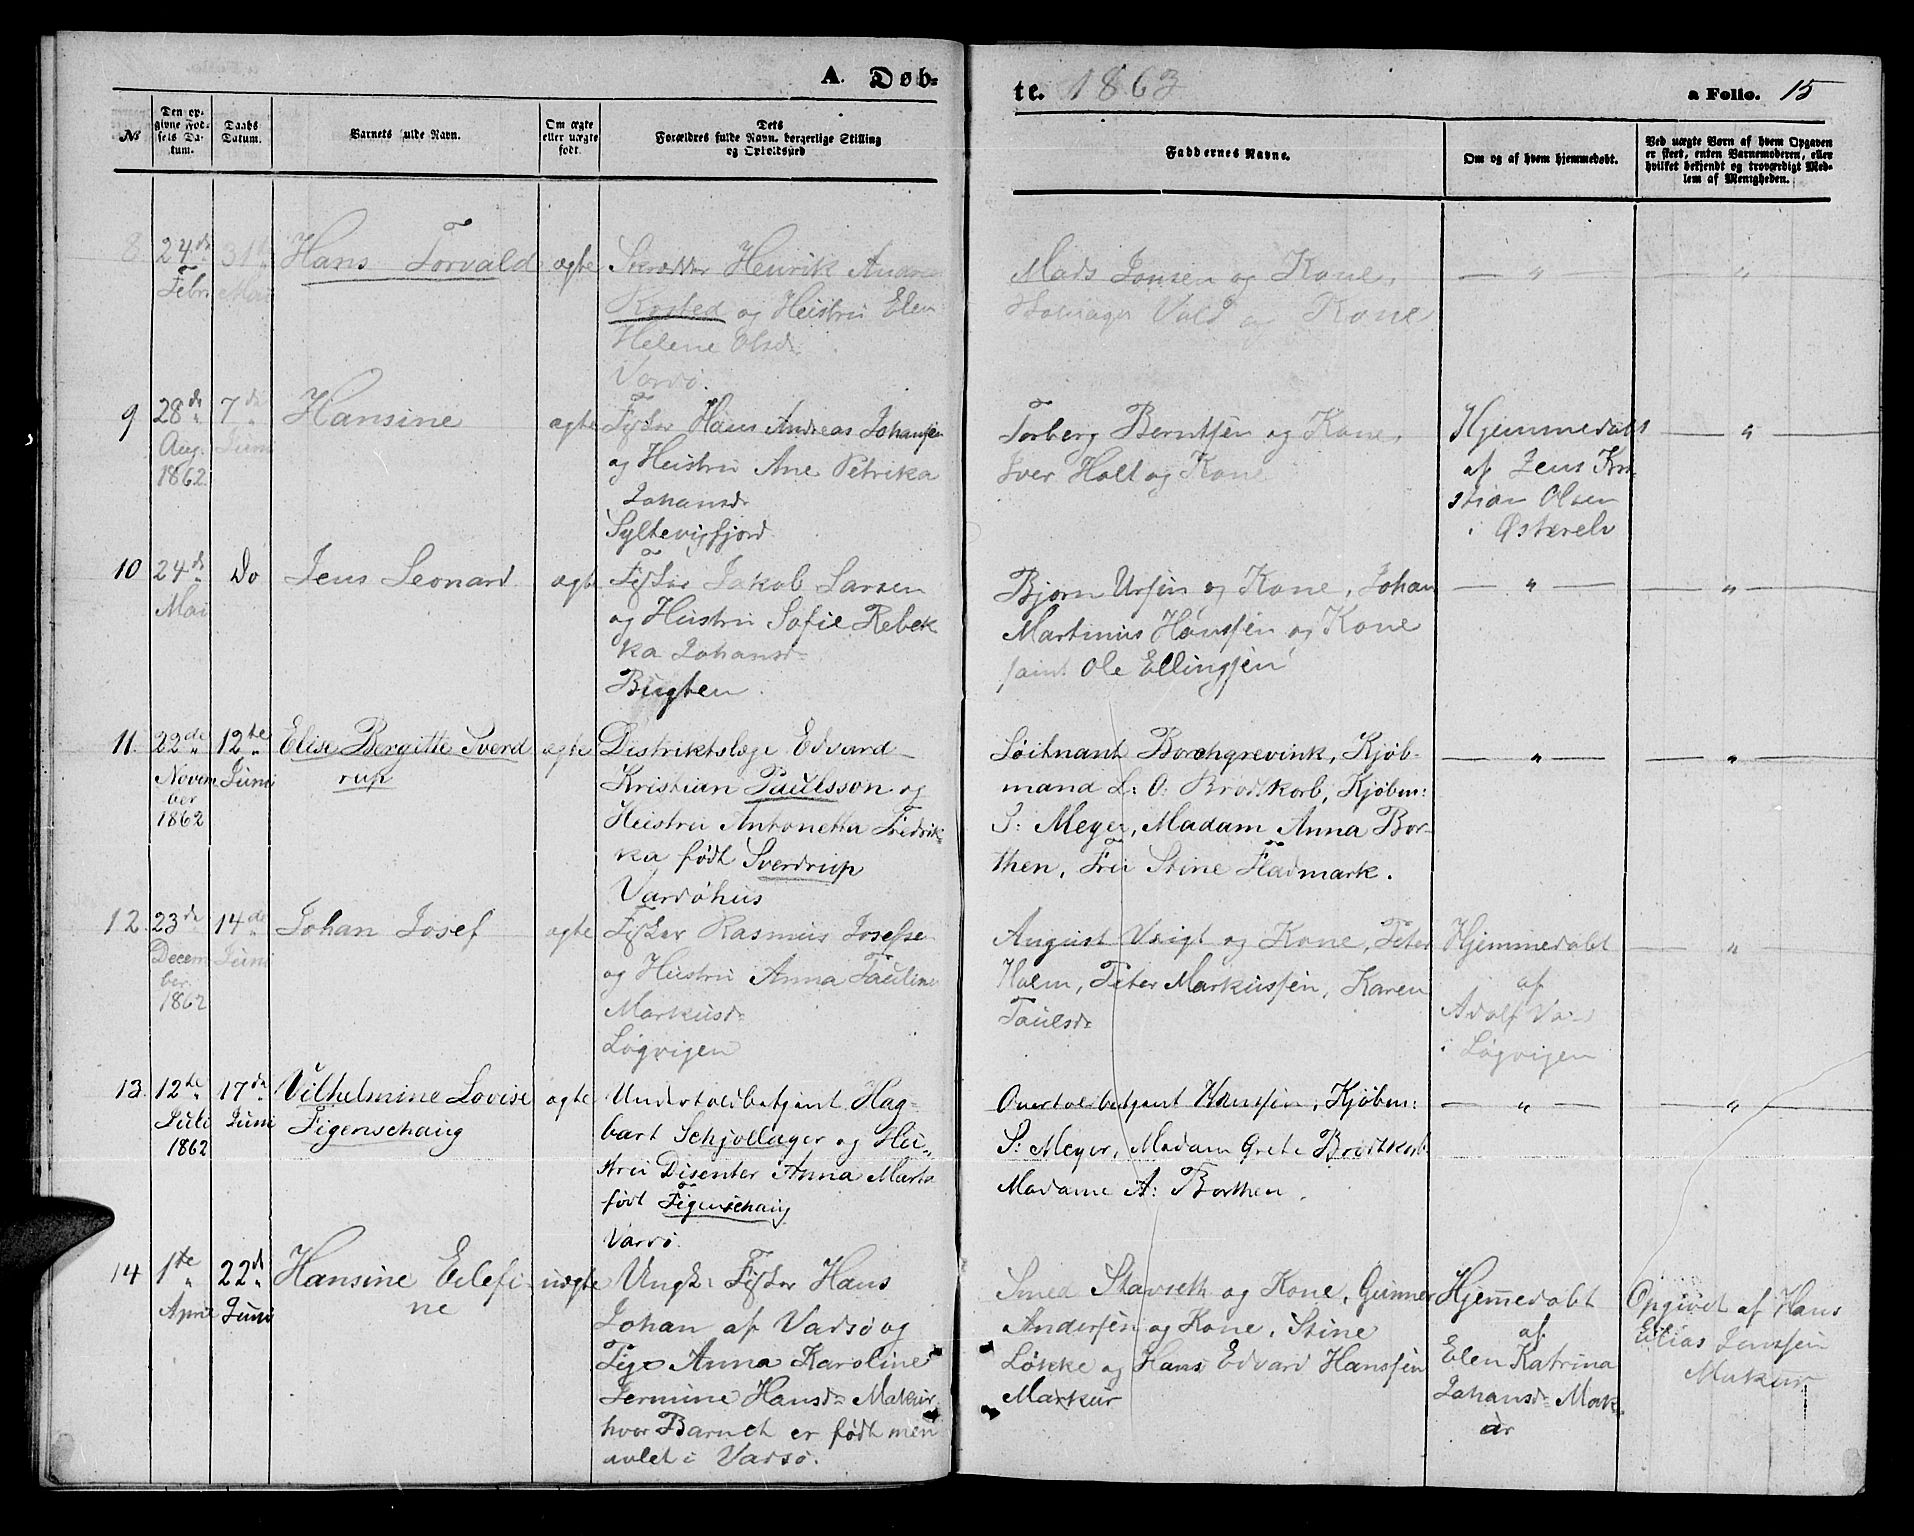 A. Døb-
te. 1863
a Folio. 15
№
Den op-
givne Fød-
sels Da-
tum.
Daabs
Datum.
Barnets fulde Navn.
Om ægte
eller uægte
født.
Dets
Forældres fulde Navn, borgerlige Stilling
og Opholdssted
Faddernes Navne.
Om og af hvem hjemmedøbt.
Ved uægte Børn af hvem Opgaven
er skeet, enten Barnemoderen, eller
hvilket bekjendt og troværdigt Med-
lem af Menigheden.
8 24de Febr. 31te Mai
Hans Torvald
ægte
Skrædder Henrik Andrea
Kosted og Hustru Elen
Helene Olsdr
Vardø.
Mads Jonsen og Kone,
Vold og Kone
— " —
— " —
9 28de Aug. 1862
7de Juni
Hansine
ægte
Fisker Hans Andreas Johansen
og Hustru Ane Petrika
Johansdr
Syltevigfjord
Torberg Berntsen og Kone,
Iver Holt og Kone
Hjemmedøbt
af Jens Kri
stian Olsen
i Østerelv
— " —
10 24de Mai
Do
Jens Leonard
ægte
Fisker Jakob Larsen
og Hustru Sofie Rebek
ka Johansd-
Bugten.
Bjørn Ursin og Kone, Johan
Martinus Hanssen og Kone
samt Ole Ellingsen
— " —
— " —
11. 22de Novem
ber
1862
12te Juni
Elise Bergitte Sverd
rup
ægte
Distriktslæge Edvard
Kristian Paulsson og
Hustru Antonetta Fredrik-
ka født Sverdrup
Vardøhus
Løitnant Borchgrevink, Kjøb-
mand L: O: Brodtkorb, Kjøbm:
S: Meyer, Madam Anna Bor-
then, Fru Stine Fladmark.
— " —
— " —
12. 23de Decem
ber
1862
14de Juni
Johan Josef
ægte
Fisker Rasmus Josefse
og Hustru Anna Pauline
Markusd-
Løgvigen
August Voigt og Kone, Peter
Holm, Peter Markussen, Karen
Paulsd-
Hjemmedøbt
af
Adolf
i Løgvigen
— " —
13. 12te Juli
1862
17de Juni
Vilhelmine Lovise
Figenschaug
ægte
Undertoldbetjent Hag-
bart Schjøllager og Hu-
stru Disenter Anna Marta
født Figenschaug
Vardø.
Overtoldbetjent Hanssen, Kjøbm:
S: Meyer, Madam Grete Brodtkorb
Madame A: Borthen.
— " —
— " —
14 1te April
22de Juni
Hansine Eilefi-
ne
uægte
Ungk: Fisker Hans
Johan af Vadsø og
Pige Anna Karoline
Jermine Hansd- Makur
hvor Barnet er født men
avlet i Vadsø.
Smed Stavseth og Kone, Gunner
Andersen og Kone, Stine
Løkke og Hans Edvard Hanssen
Markur
Hjemmedøbt
af
Elen Katrina
Johansd- Mak-
ur
Opgivet af Hans
Elias Jenssen
Makur